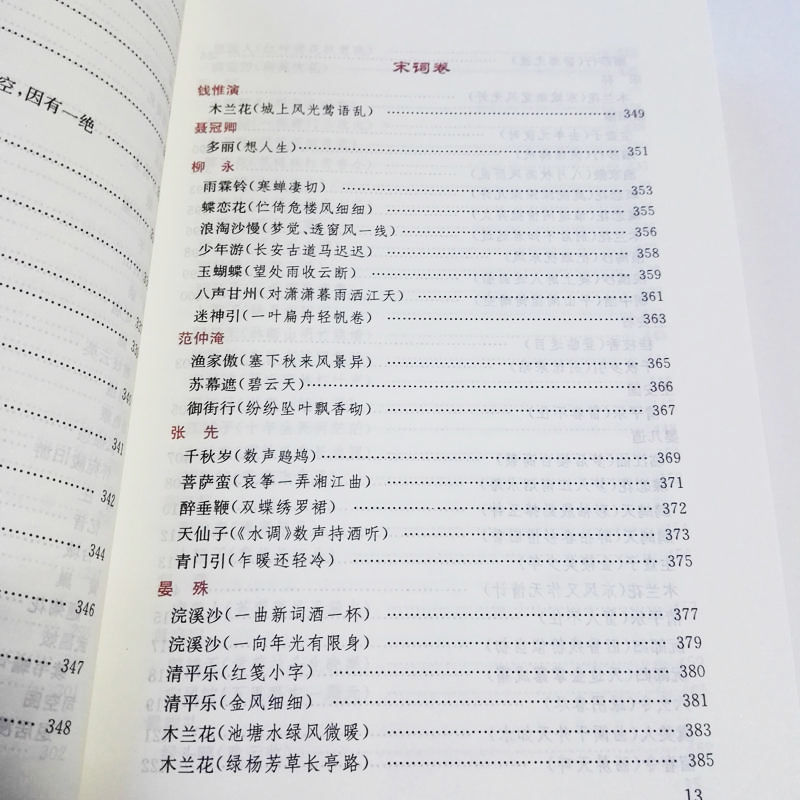 空,因有一绝
341
342
344
346
347
348
宋词卷
钱惟演
木兰花(城上风光莺语乱)……349
聂冠卿
多丽(想人生)……351
柳 永
雨霖铃(寒蝉凄切)……353
蝶恋花(伫倚危楼风细细)……355
浪淘沙慢(梦觉、透窗风一线)……356
少年游(长安古道马迟迟)……358
玉蝴蝶(望处雨收云断)……359
八声甘州(对潇潇暮雨洒江天)……361
迷神引(一叶扁舟轻帆卷)……363
范仲淹
渔家傲(塞下秋来风景异)……365
苏幕遮(碧云天)……366
御街行(纷纷坠叶飘香砌)……367
张 先
千秋岁(数声鶗鴂)……369
菩萨蛮(哀筝一弄湘江曲)……371
醉垂鞭(双蝶绣罗裙)……372
天仙子(《水调》数声持酒听)……373
青门引(乍暖还轻冷)……375
晏 殊
浣溪沙(一曲新词酒一杯)……377
浣溪沙(一向年光有限身)……379
清平乐(红笺小字)……380
清平乐(金风细细)……381
木兰花(池塘水绿风微暖)……383
木兰花(绿杨芳草长亭路)……385
13